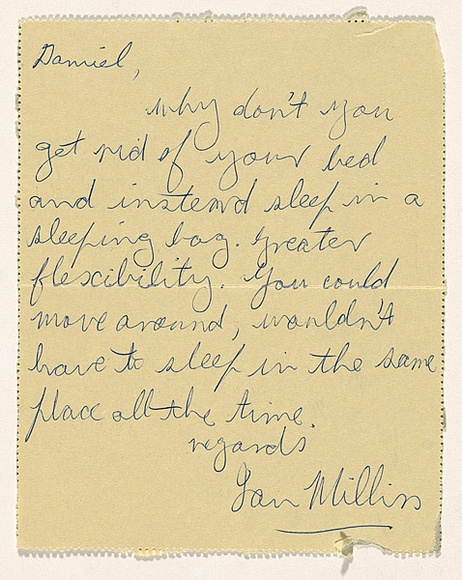 Daniel,
why don't you
get rid of your bed
and instead sleep in a
sleeping bag. Greater
flexibility. You could
move around, wouldn't
have to sleep in the same
place all the time.
regards
Ian Milliss